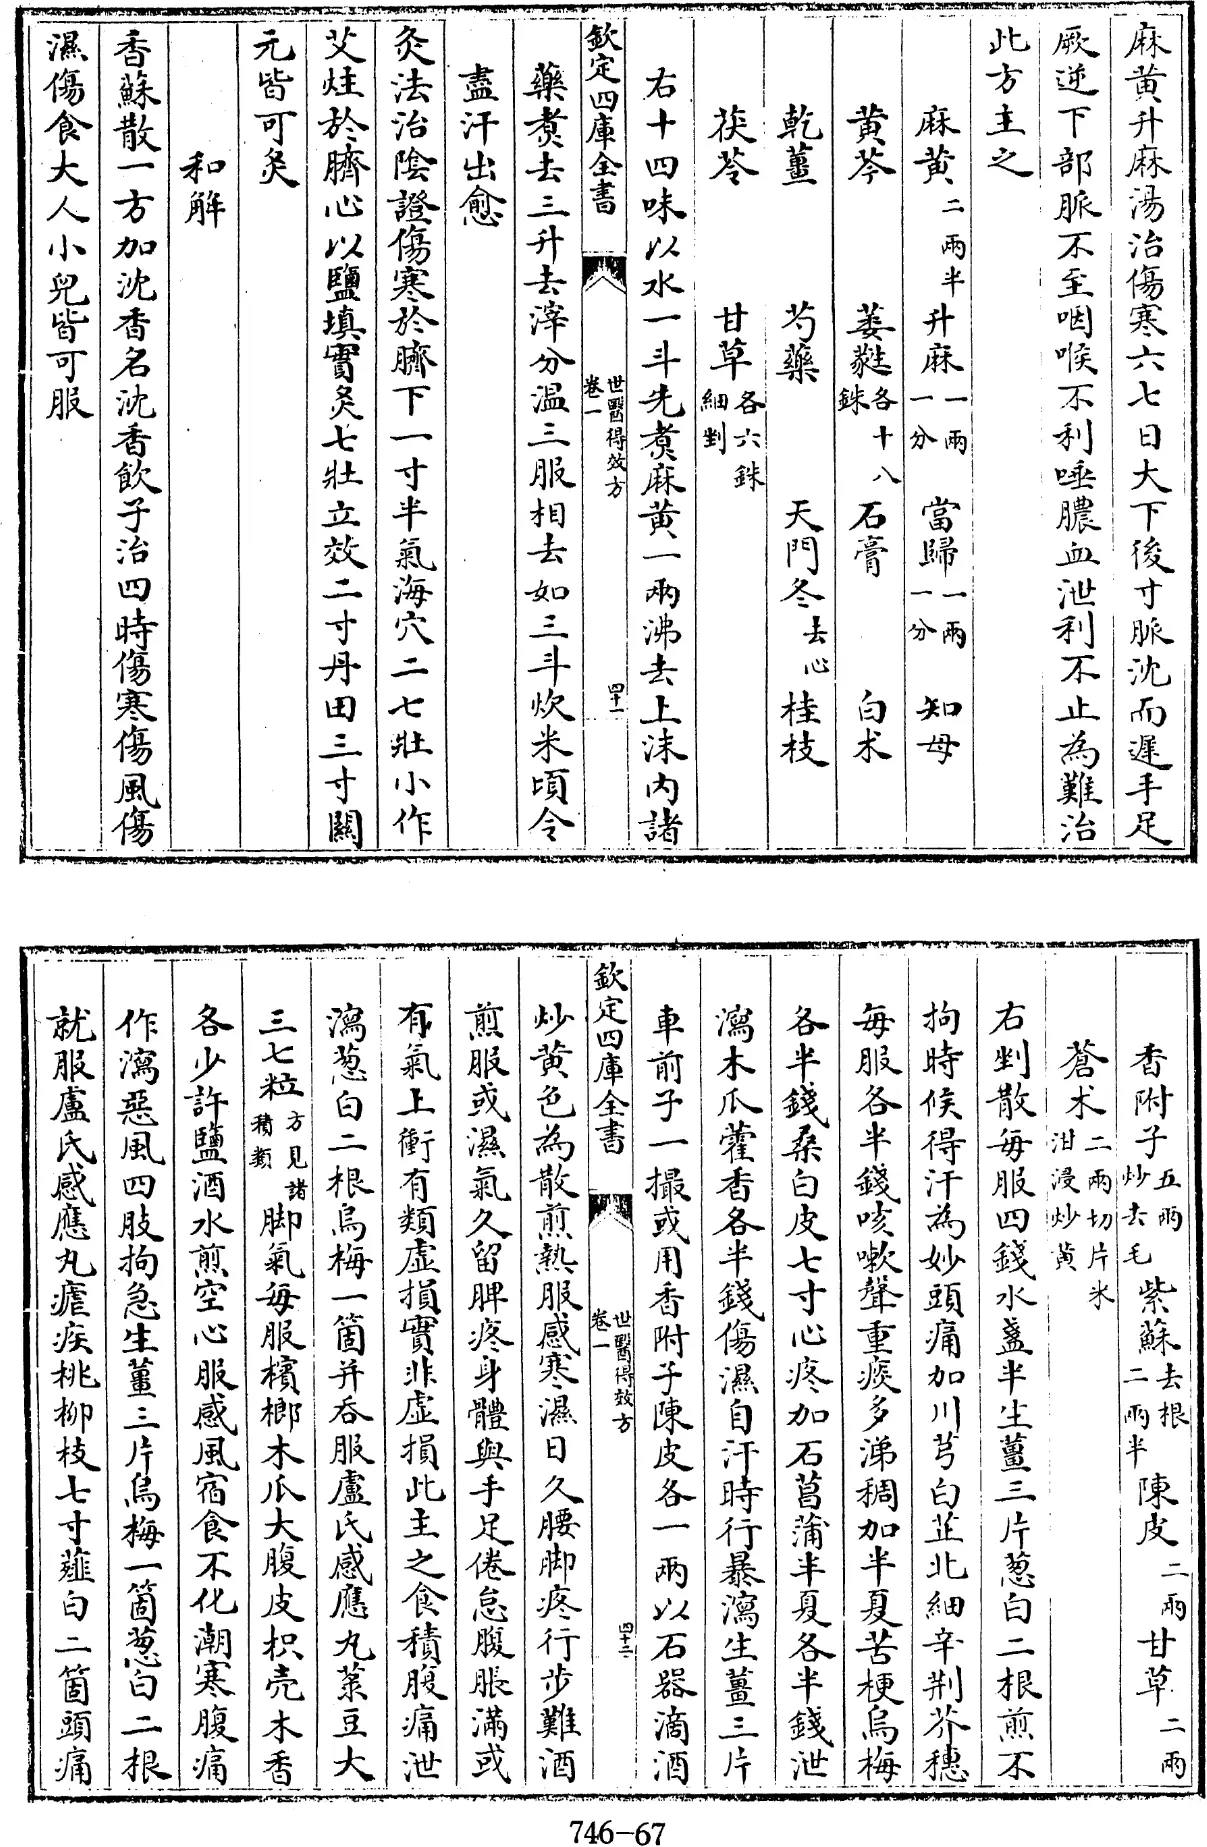 麻黄升麻湯治傷寒六七日大下後寸脈沈而遲手足
厥逆下部脈不至咽喉不利唾膿血泄利不止為難治
此方主之
麻黄二兩半 升麻一兩一分 當歸一兩一分 知母
黄芩 萎蕤各十八銖 石膏 白术
乾薑 芍藥 天門冬去心 桂枝
茯苓 甘草各六銖細剉
右十四味以水一斗先煑麻黄一兩沸去上沫内諸
欽定四庫全書 世醫得效方卷一 四十一
藥煑去三升去滓分温三服相去如三斗炊米頃令
盡汗出愈
灸法治陰證傷寒於臍下一寸半氣海穴二七壯小作
艾炷於臍心以鹽填實灸七壯立效二寸丹田三寸關
元皆可灸
和解
香蘇散一方加沈香名沈香飲子治四時傷寒傷風傷
濕傷食大人小兒皆可服
香附子五兩炒去毛 紫蘇去根二兩半 陳皮二兩 甘草二兩
蒼术二兩切片米泔浸炒黄
右剉散每服四錢水盞半生薑三片葱白二根煎不
拘時候得汗為妙頭痛加川芎白芷北細辛荆芥穗
每服各半錢咳嗽聲重痰多涕稠加半夏苦梗烏梅
各半錢桑白皮七寸心疼加石菖蒲半夏各半錢泄
瀉木瓜藿香各半錢傷濕自汗時行暴瀉生薑三片
車前子一撮或用香附子陳皮各一兩以石器滴酒
欽定四庫全書 世醫得效方卷一 四十二
炒黄色為散煎熟服感寒濕日久腰脚疼行步難酒
煎服或濕氣久留脾疼身體與手足倦怠腹脹滿或
有氣上衝有類虚損實非虚損此主之食積腹痛泄
瀉葱白二根烏梅一箇并吞服盧氏感應丸菉豆大
三七粒方見諸積類 脚氣每服檳榔木瓜大腹皮枳壳木香
各少許鹽酒水煎空心服感風宿食不化潮寒腹痛
作瀉惡風四肢拘急生薑三片烏梅一箇葱白二根
就服盧氏感應丸瘧疾桃柳枝七寸薤白二箇頭痛
746-67